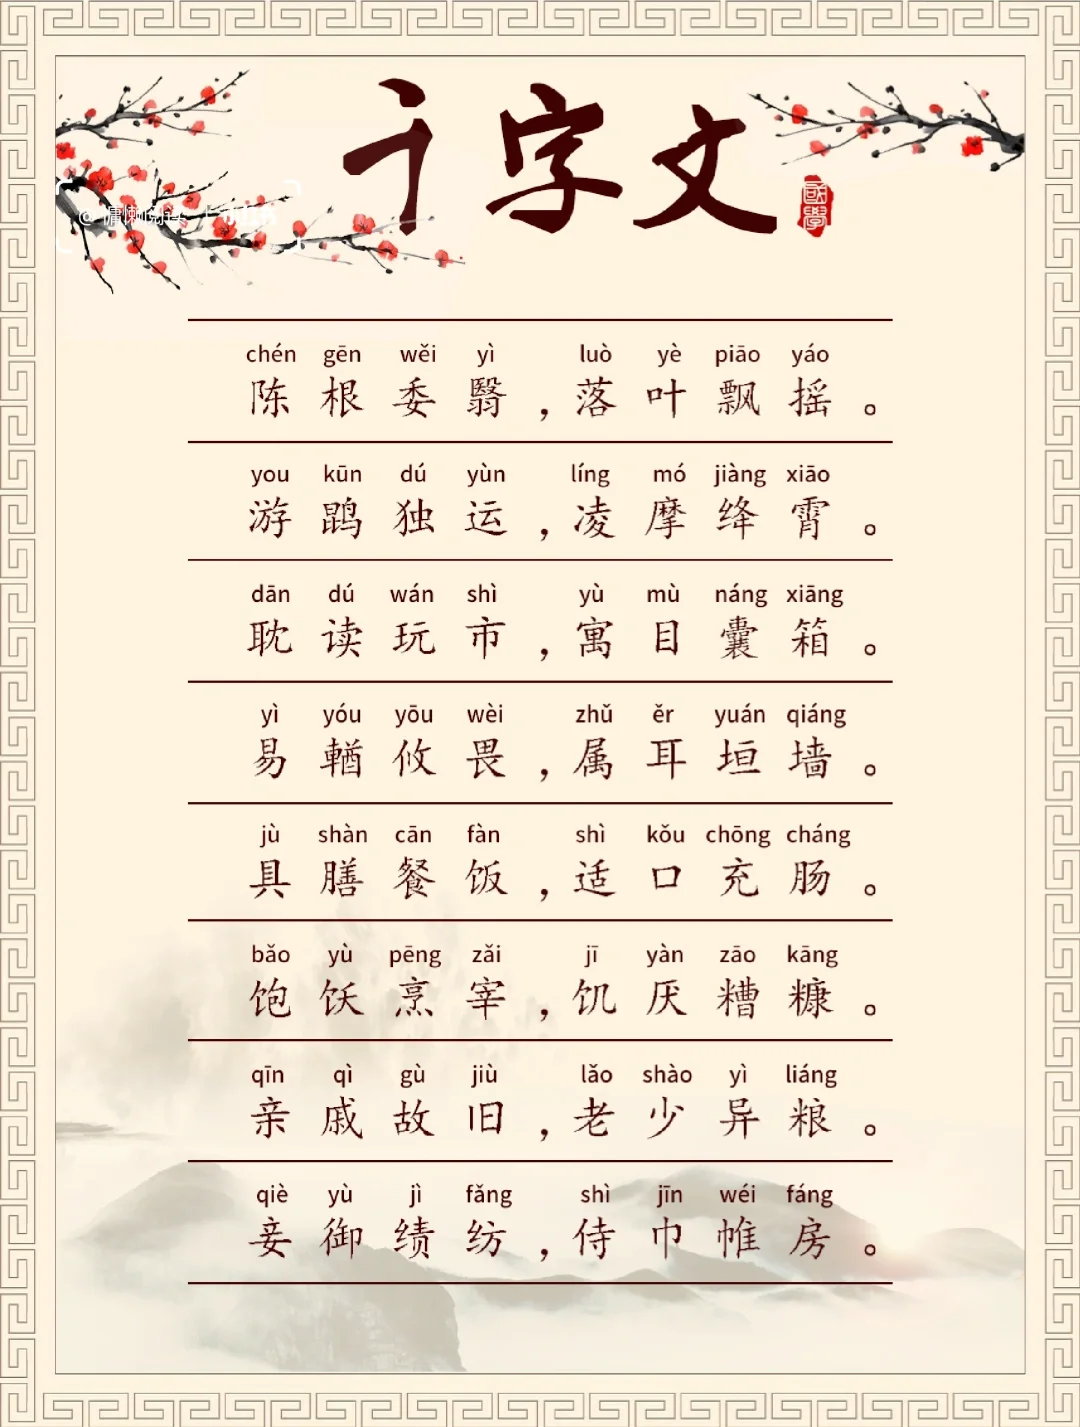 千字文
國學
chén gēn wěi yì luò yè piāo yáo
陈根委翳，落叶飘摇。
you kūn dú yùn líng mó jiàng xiāo
游鹍独运，凌摩绛霄。
dān dú wán shì yù mù náng xiāng
耽读玩市，寓目囊箱。
yì yóu yōu wèi zhǔ ěr yuán qiáng
易輶攸畏，属耳垣墙。
jù shàn cān fàn shì kǒu chōng cháng
具膳餐饭，适口充肠。
bǎo yù pēng zǎi jī yàn zāo kāng
饱饫烹宰，饥厌糟糠。
qīn qì gù jiù lǎo shào yì liáng
亲戚故旧，老少异粮。
qiè yù jì fǎng shì jīn wéi fáng
妾御绩纺，侍巾帷房。